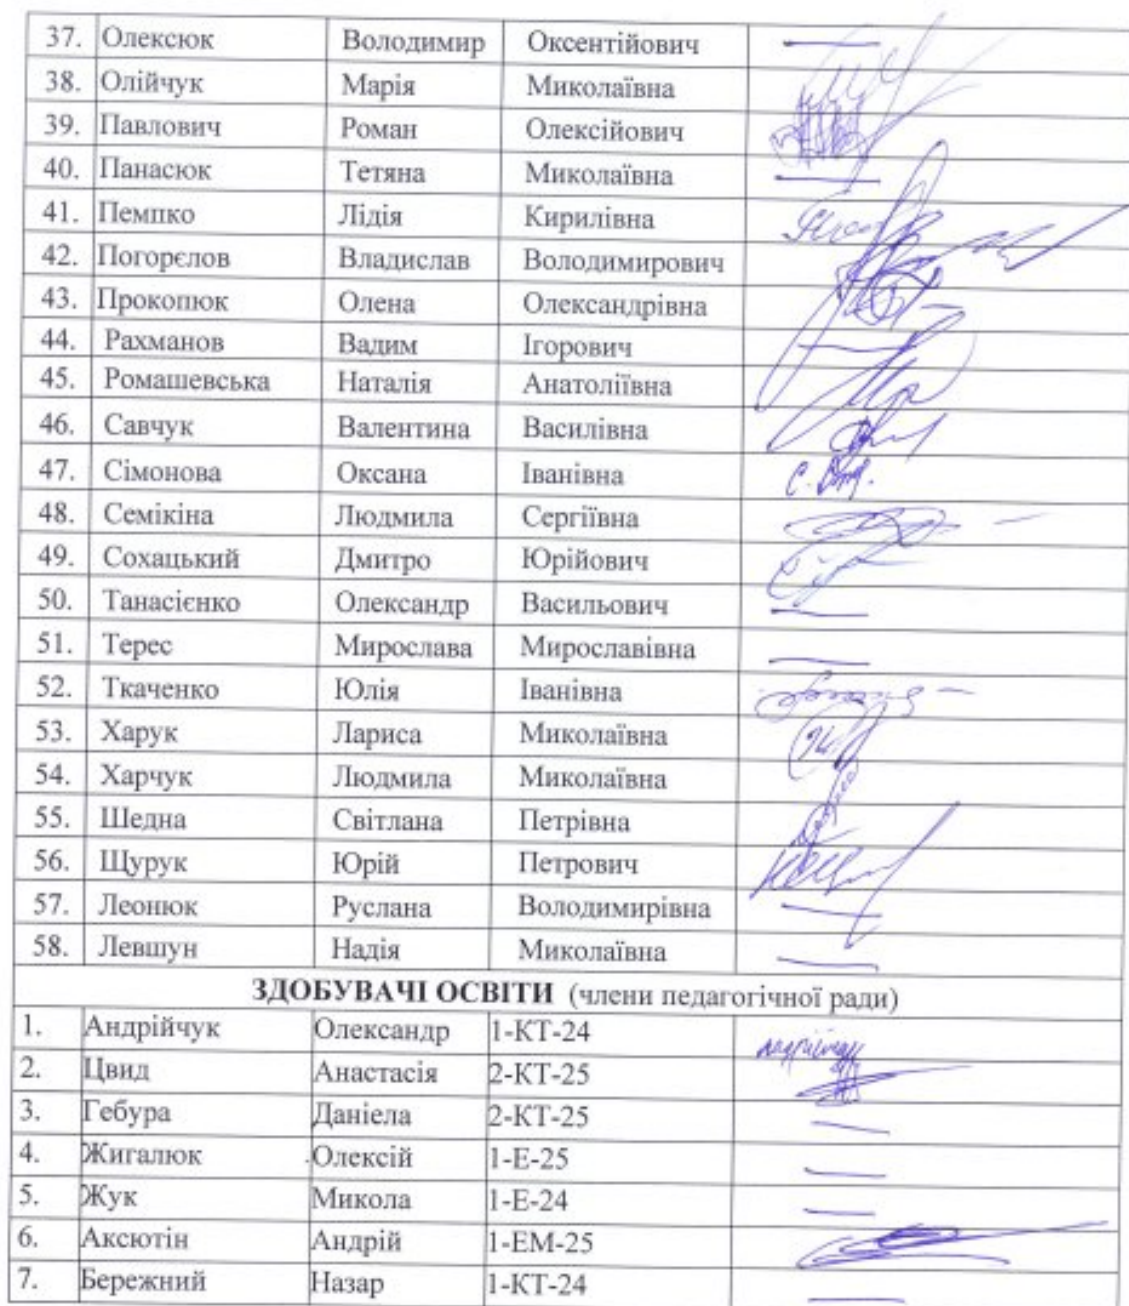 37. Олексюк Володимир Оксентійович
38. Олійчук Марія Миколаївна
39. Павлович Роман Олексійович
40. Панасюк Тетяна Миколаївна
41. Пемпко Лідія Кирилівна
42. Погорєлов Владислав Володимирович
43. Прокопюк Олена Олександрівна
44. Рахманов Вадим Ігорович
45. Ромашевська Наталія Анатоліївна
46. Савчук Валентина Василівна
47. Сімонова Оксана Іванівна
48. Семікіна Людмила Сергіївна
49. Сохацький Дмитро Юрійович
50. Танасієнко Олександр Васильович
51. Терес Мирослава Мирославівна
52. Ткаченко Юлія Іванівна
53. Харук Лариса Миколаївна
54. Харчук Людмила Миколаївна
55. Шедна Світлана Петрівна
56. Щурук Юрій Петрович
57. Леонюк Руслана Володимирівна
58. Левшун Надія Миколаївна
ЗДОБУВАЧІ ОСВІТИ (члени педагогічної ради)
1. Андрійчук Олександр 1-КТ-24
2. Цвид Анастасія 2-КТ-25
3. Гебура Даніела 2-КТ-25
4. Жигалюк Олексій 1-Е-25
5. Жук Микола 1-Е-24
6. Аксютін Андрій 1-ЕМ-25
7. Бережний Назар 1-КТ-24